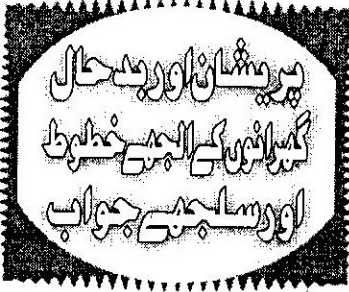 پریشان اور بدحال
گھرانوں کے الجھے خطوط
اور سلجھے جواب